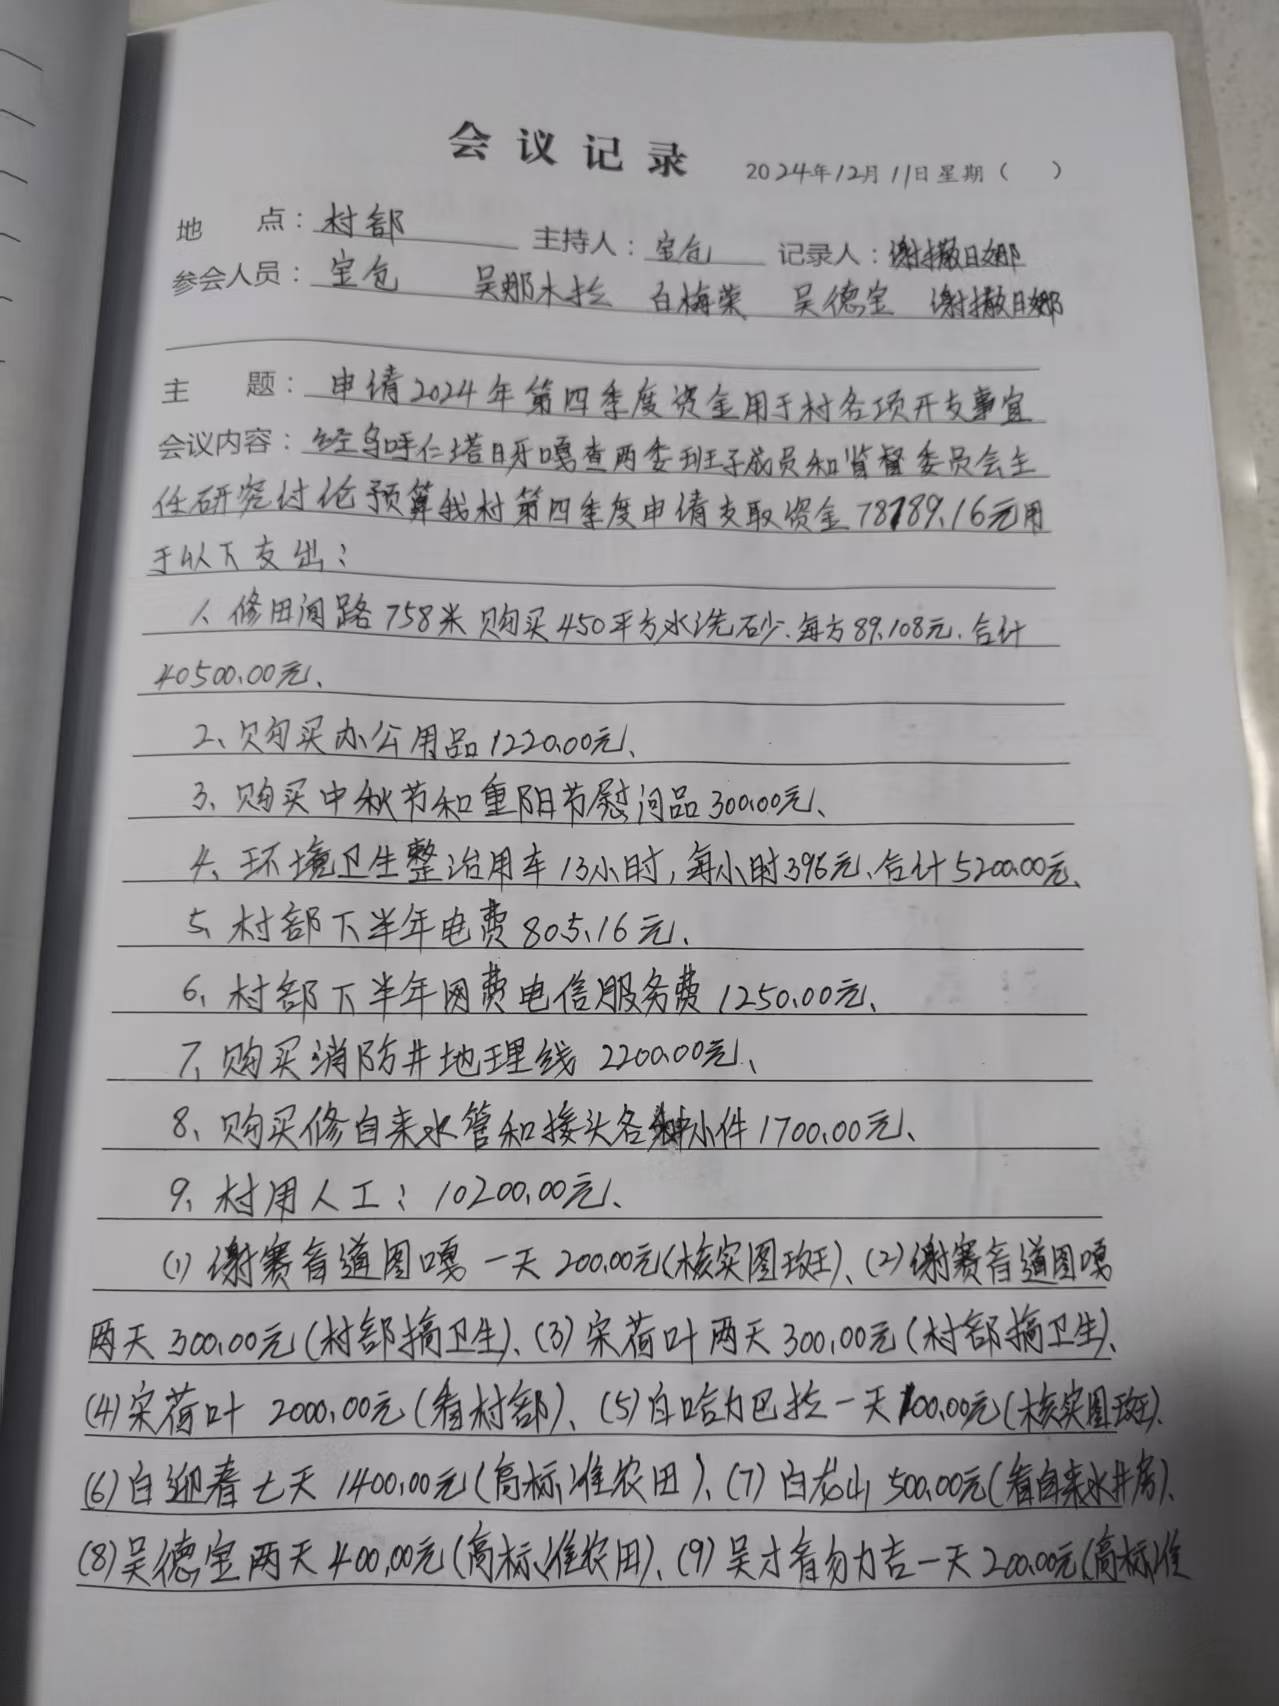 会议记录 2024年12月11日星期（ ）
地 点：村部 主持人：宝仓 记录人：谢撒日娜
参会人员：宝仓 吴娜木拉 白梅荣 吴德宝 谢撒日娜
主 题：申请2024年第四季度资金用于村各项开支事宜
会议内容：经乌呼仁塔日牙嘎查两委班子成员和监督委员会主
任研究讨论预算我村第四季度申请支取资金78789.16元用
于以下支出：
1、修田间路758米购买450平方水洗砂、每方89.108元、合计
40500.00元、
2、购买办公用品1220.00元、
3、购买中秋节和重阳节慰问品300.00元、
4、环境卫生整治用车13小时，每小时396元、合计5200.00元、
5、村部下半年电费805.16元、
6、村部下半年网费电信服务费1250.00元、
7、购买消防井地理线2200.00元、
8、购买修自来水管和接头各种小件1700.00元、
9、村用人工：10200.00元、
(1)谢赛音道图嘎一天200.00元(核实图斑)、(2)谢赛音道图嘎
两天300.00元(村部搞卫生)、(3)宋荷叶两天300.00元(村部搞卫生)、
(4)宋荷叶 2000.00元(看村部)、(5)白哈力巴拉一天100.00元(核实图斑)、
(6)白迎春七天1400.00元(高标准农田)、(7)白龙山500.00元(看自来水井房)、
(8)吴德宝两天400.00元(高标准农田)、(9)吴才音勿力吉一天200.00元(高标准